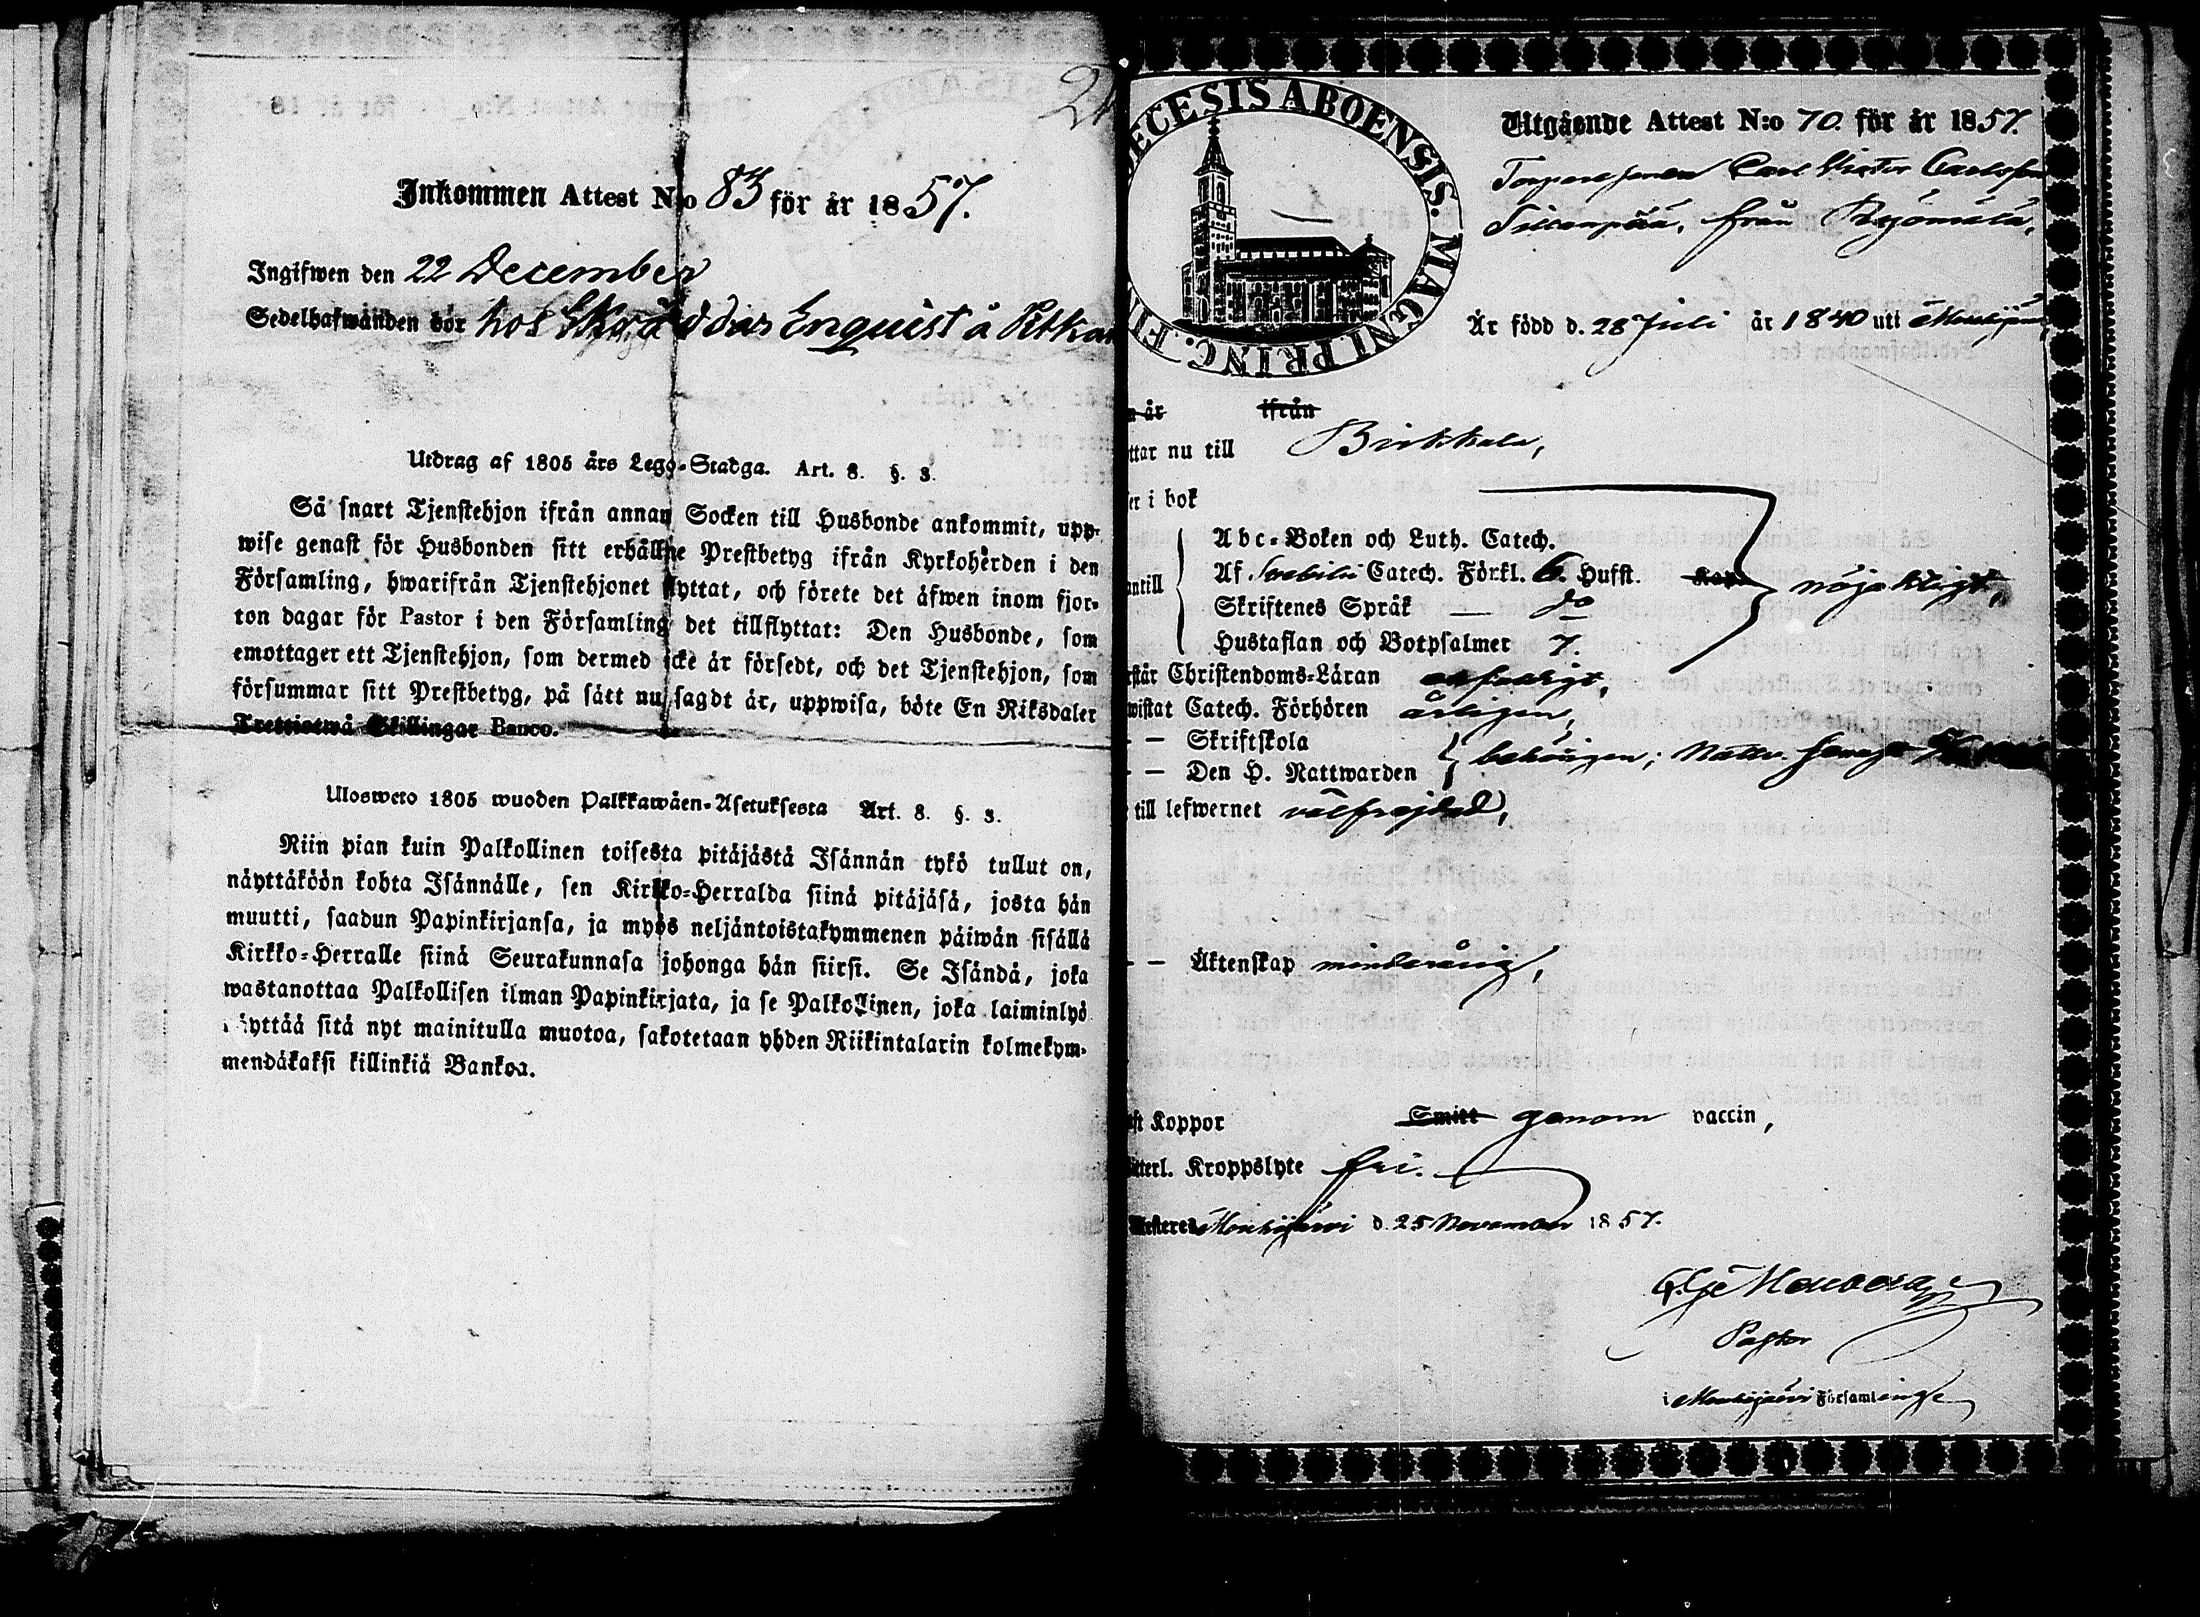 Inkommen Attest N:o 83 för år 1857.
Ingifwen den 22 December
Sedelhafwanden bor hos Skräddar Enquist å Pitkä
Utdrag af 1805 års Lego-Stadga. Art. 8. §. 3.
Så snart Tjenstehjon ifrån annan Socken till Husbonde ankommit, upp-
wise genast för Husbonden sitt erhållne Prestbetyg ifrån Kyrkoherden i den
Församling, hwarifrån Tjenstehjonet flyttat, och förete det äfwen inom fjor-
ton dagar för Pastor i den Församling det tillflyttat: Den Husbonde, som
emottager ett Tjenstehjon, som dermed icke är försedt, och det Tjenstehjon, som
försummar sitt Prestbetyg, på sätt nu sagdt är, uppwisa, böte En Riksdaler
Trettiotwå Skillingar Banco.
Ulosweto 1805 wuoden Palkkawäen-Asetuksesta Art. 8. §. 3.
Niin pian kuin Palkollinen toisesta pitäjästä Isännän tykö tullut on,
näyttäköön kohta Isännälle, sen Kirkko-Herralda siinä pitäjäsä, josta hän
muutti, saadun Papinkirjansa, ja myös neljäntoistakymmenen päiwän sisällä
Kirkko-Herralle siinä Seurakunnasa johonga hän siirsi. Se Isändä, joka
wastanottaa Palkollisen ilman Papinkirjata, ja se Palkollinen, joka laiminlyö
näyttää sitä nyt mainitulla muotoa, sakotetaan yhden Riikintalarin kolmekym-
mendäkaksi killinkiä Bankoa.
ECESIS ABOENSIS. MAGNI PRINC. FIN
Utgående Attest N:o 70. för år 1857.
Torparesonen Carl Victor Carlsson
från
Är född d. 28 Juli år 1840 uti Mouhijärvi
år ifrån
ttar nu till Birkkala,
er i bok
Abc-Boken och Luth. Catech.
antill Af Svebilii Catech. Förkl. 6. Hufst. Kap. nöjaktigt,
Skriftenes Språk — do
Hustaflan och Botpsalmer 7.
rstår Christendoms-Läran enfaldigt,
wistat Catech. Förhören årligen,
— — Skriftskola
— — Den H. Nattwarden behörigen; Nattv.
till lefwernet välfrejdad,
— — Äktenskap minderårig,
ft Koppor Smitt genom vaccin,
tterl. Kroppslyte fri.
Attesteres Mouhijärvi d. 25 November 1857.
Pastor
i Mouhijärvi Församlinge